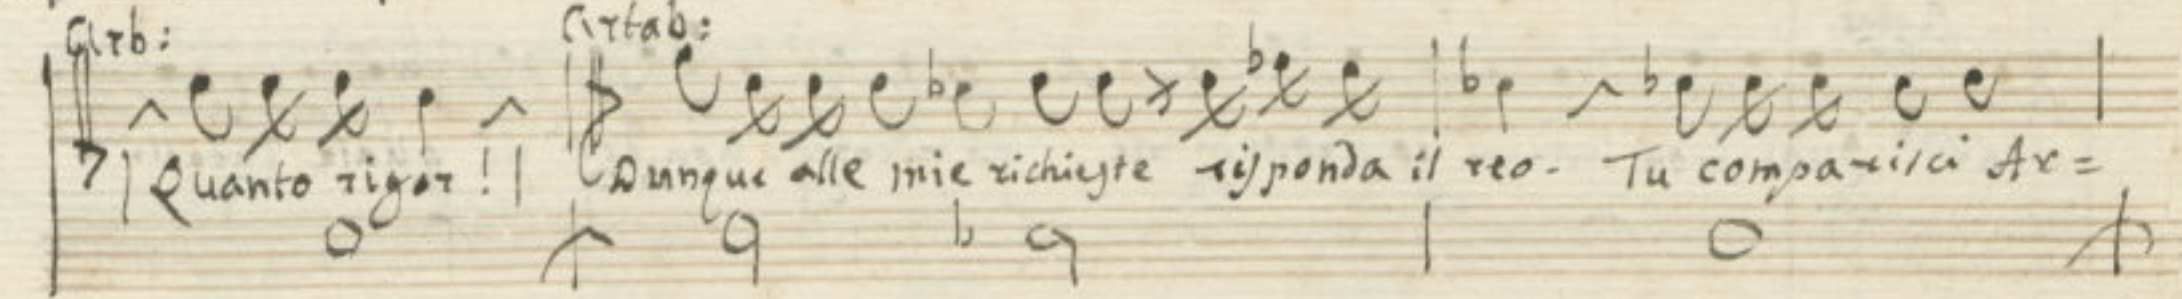 Arb: Artab:
Quanto rigor! Dunque alle mie richieste risponda il reo. Tu comparisci Ar=